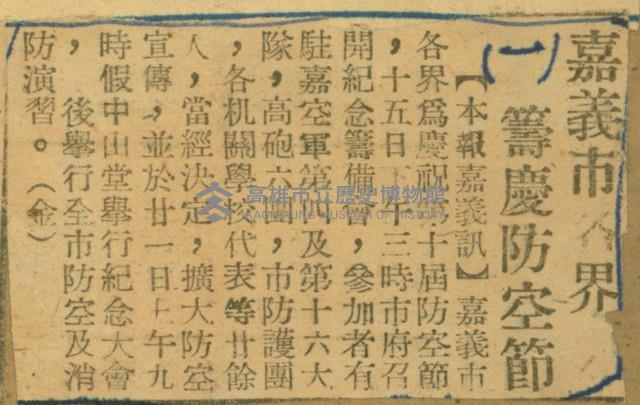 嘉義市界
(一)
籌慶防空節
【本報嘉義訊】嘉義市
各界爲慶祝十屆防空節
，十五日下三時市府召
開紀念籌備會，參加者有
駐嘉空軍第四及第十六大
隊，高砲六團，市防護團
，各机關學校代表等廿餘
人，當經決定，擴大防空
宣傳，並於廿一日上午九
時假中山堂舉行紀念大會
，後舉行全市防空及消
防演習。（金）
高雄市立歷史博物館
KAOHSIUNG MUSEUM OF HISTORY